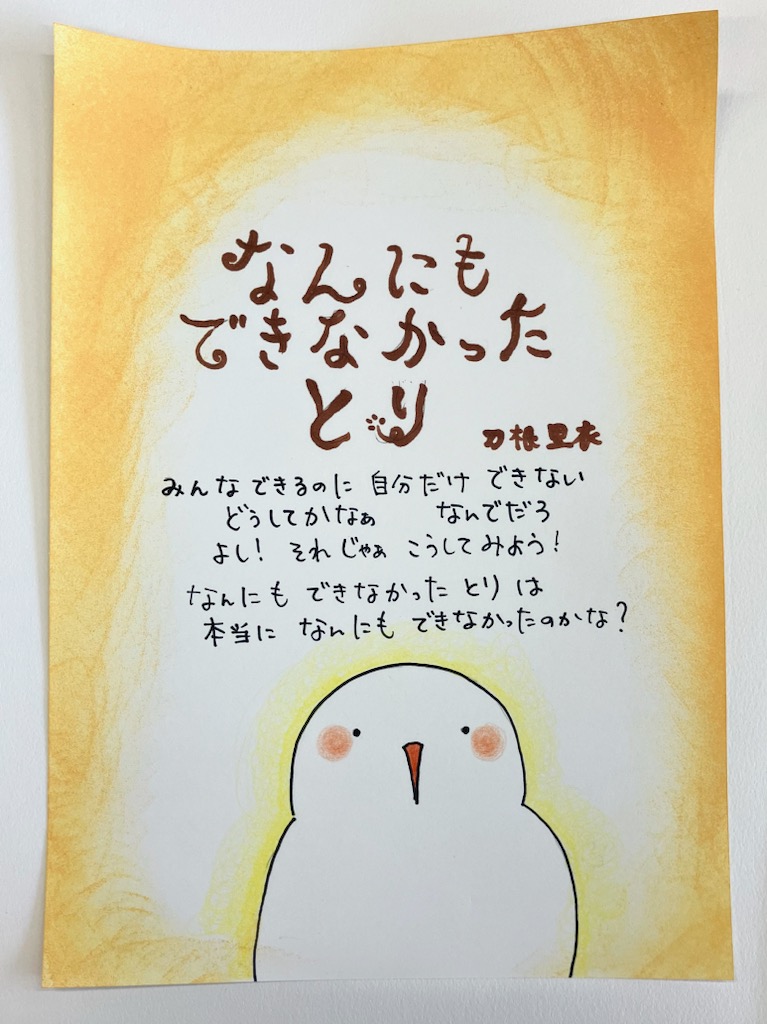 なんにも
できなかった
とり
刀根里衣
みんなできるのに 自分だけ できない
どうしてかなぁ なんでだろ
よし! それじゃぁ こうしてみよう!
なんにも できなかった とり は
本当に なんにも できなかったのかな?